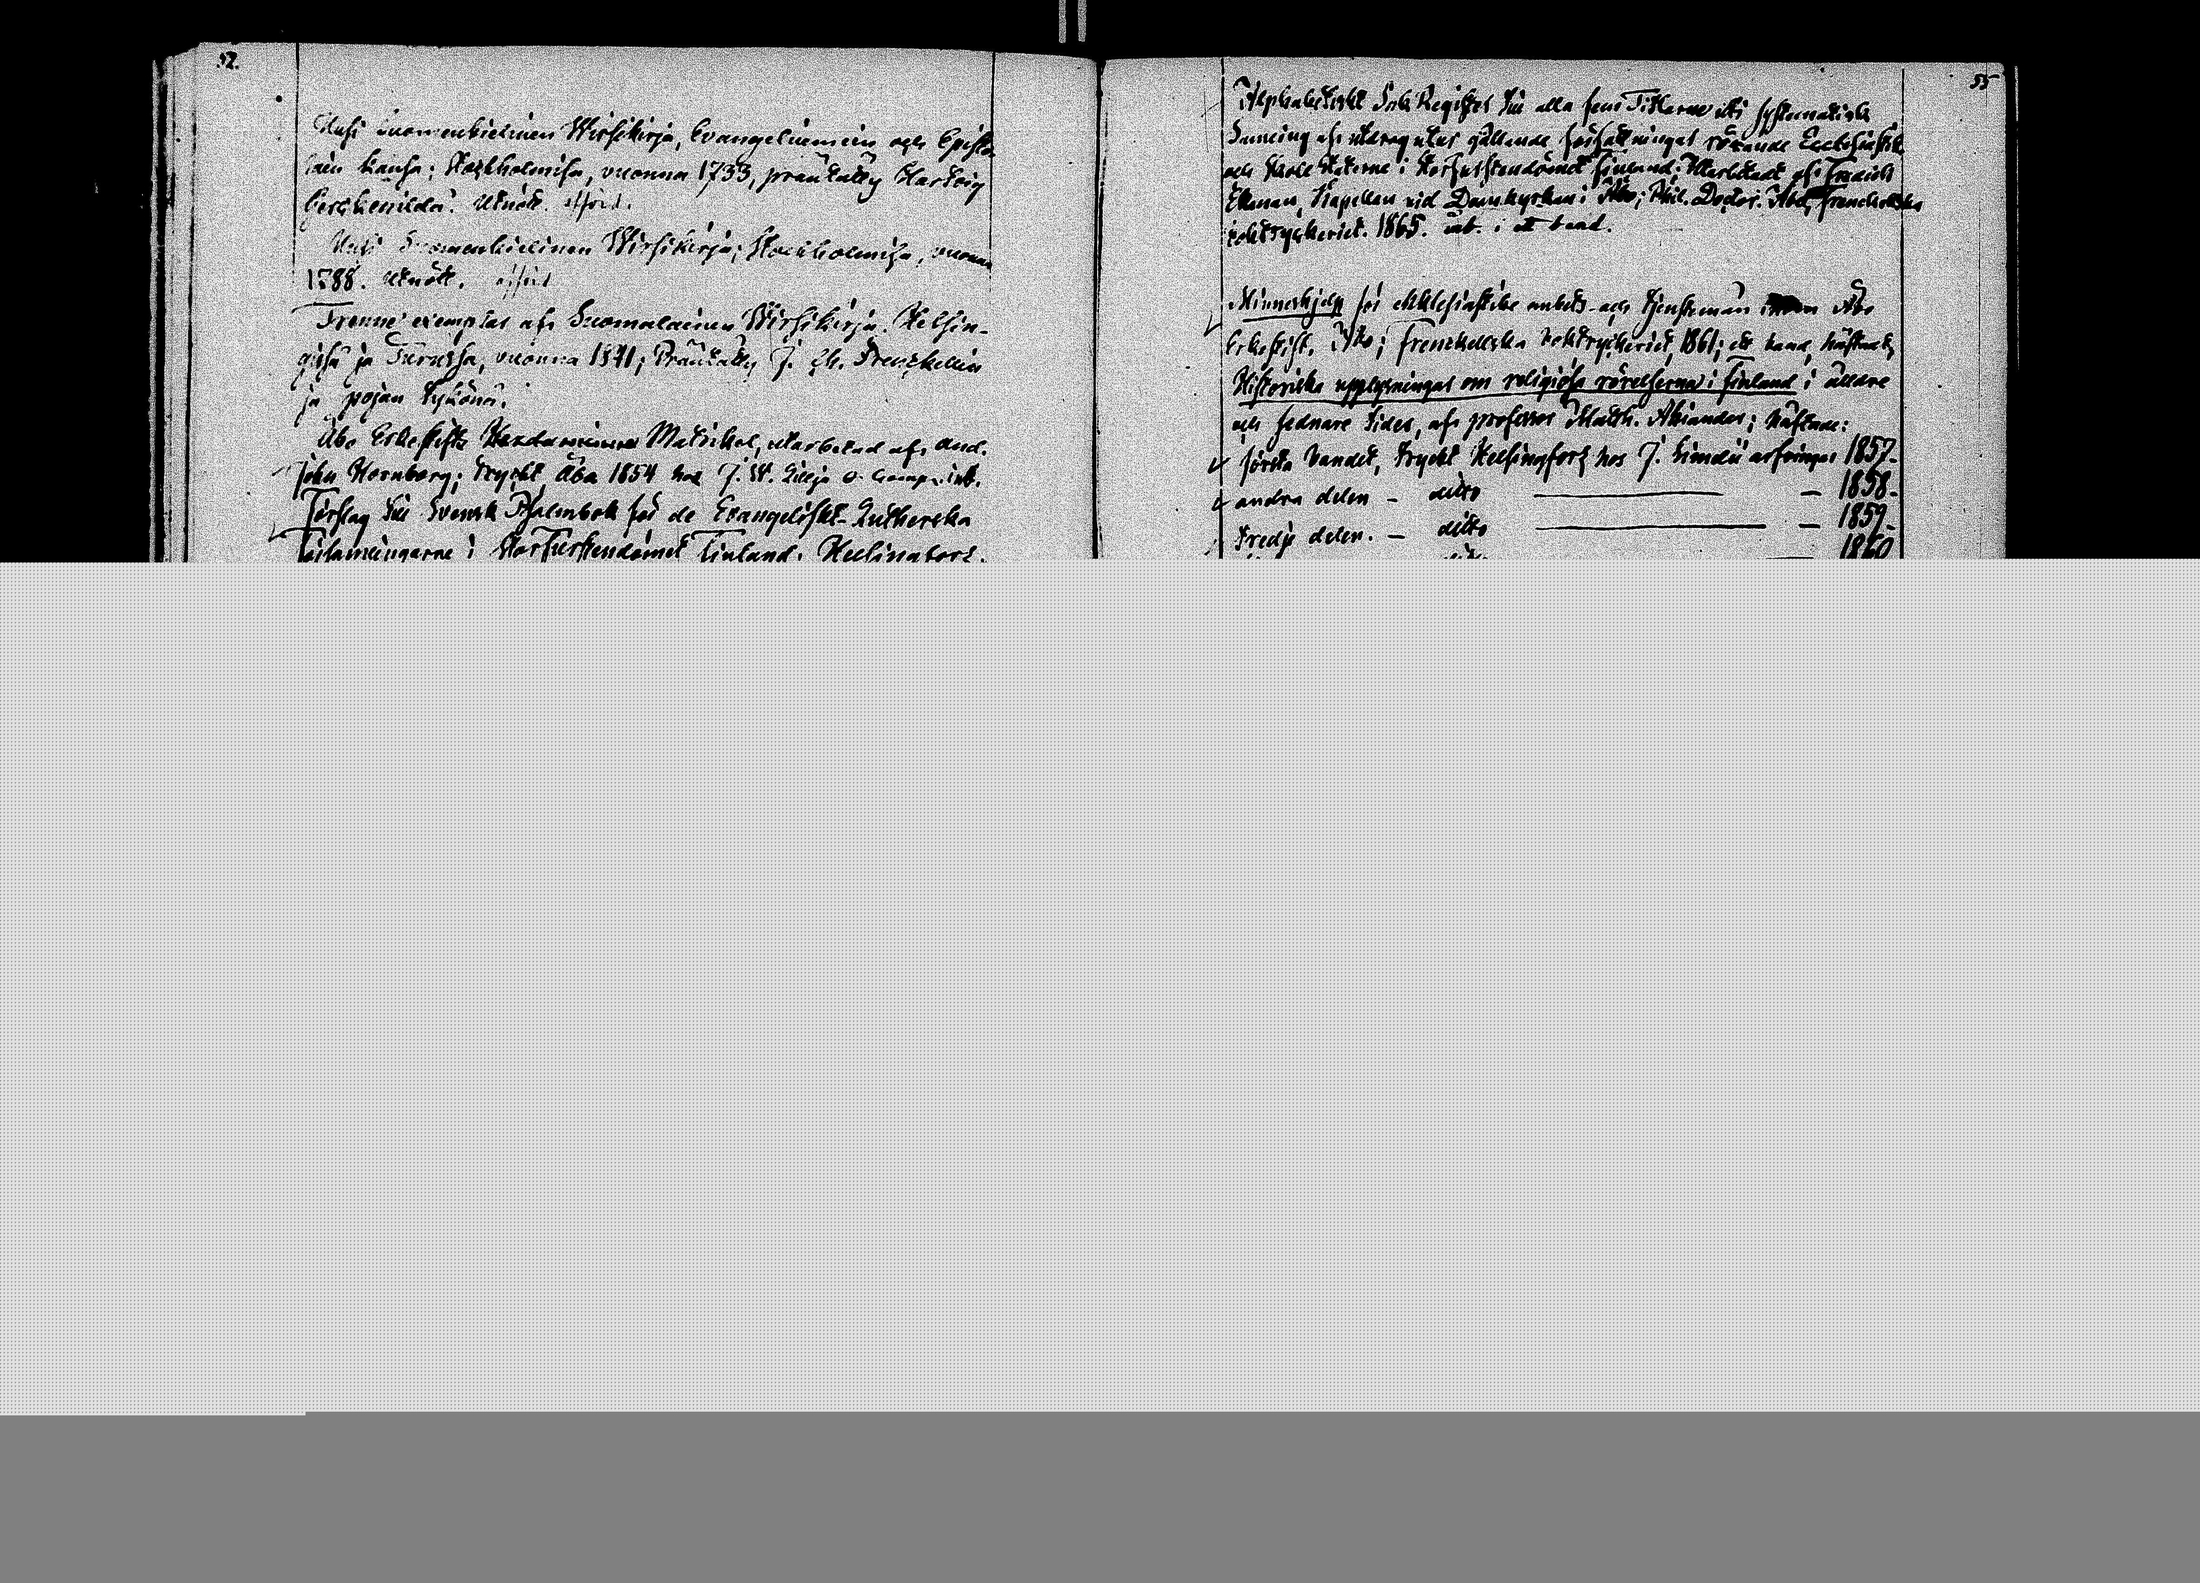 52.
Uusi Suomenkielinen Wirsikirja, Evangeliumein och Episto
lain kansa; Stockholmisa, vuonna 1733, präntätty Hartwig
Gerckenildä. Utnött.
Uusi Suomenkielinen Wirsikirja; Stockholmisa, vuonna
1788. Utnött.
Trenne exemplar af Suomalainen Wirsikirja. Helsin-
gisä ja Turussa, vuonna 1841; Präntätty J. Ch. Frenckellin
ja pojan tykönä.
Åbo Erkestifts Herdaminne Matrikel, utarbetad af And.
John Hornborg; tryckt Åbo 1854 hos J. W. Lillja & Comp. inb.
Förslag till Svensk Psalmbok för de Evangeliskt-Lutherska
församlingarne i StorFurstendömet Finland. Helsingfors.
55
Alphabetiskt Sak Register till alla fem Titlarne uti systematisk
Samling af utdrag utur gällande författningar rörande Ecclesiastik
och Skole Staterne i Storfurstendömet Finland; Utarbetadt af Fredrich
Ekman, Kapellan vid Domkyrkan i Åbo; Phil. Doctor. Åbo, Frenckellska
boktryckeriet. 1865. inb. i ett band.
Minneshjelp för ekklesiastike embets- och tjensteman inom Åbo
Erkestift. Åbo; Frenckellska boktryckeriet, 1861; ett band, häftadt,
Historiska upplysningar om religiösa rörelserna i Finland i äldre
och sednare tider, af professor Matth. Akiander; häftade:
första bandet, tryckt Helsingfors hos J. Simelii arfvingar 1857.
andra delen - ditto — 1858.
tredje delen. - ditto — 1859.
1860